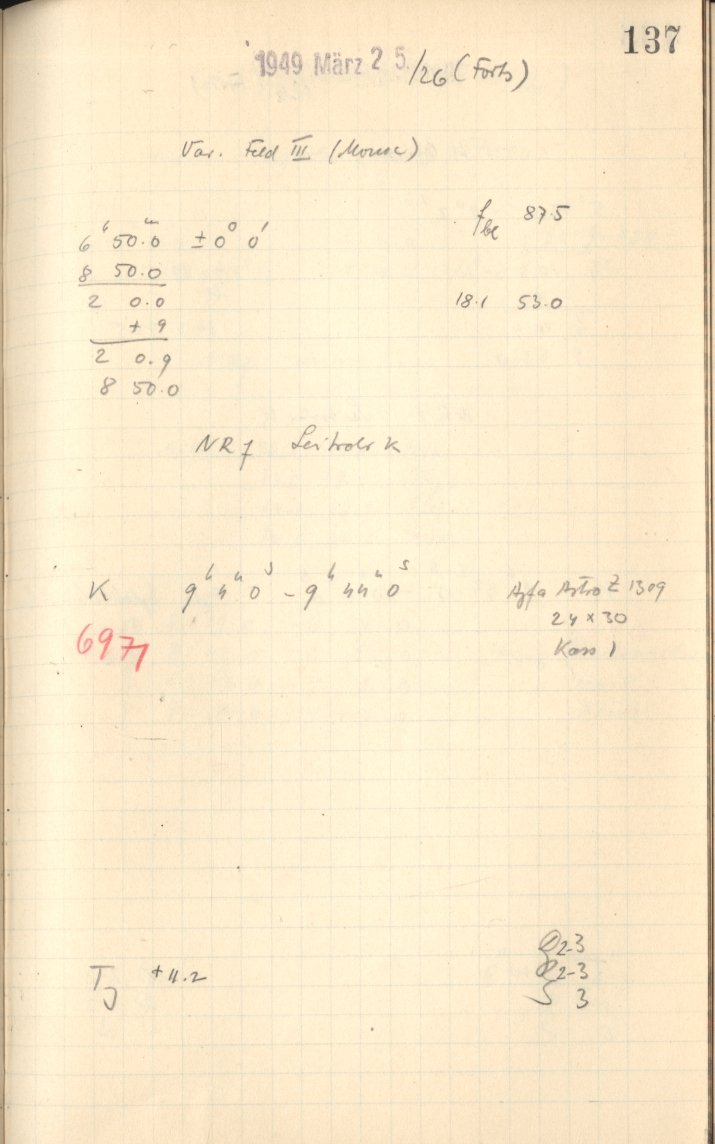 137
1949 März 25./26 (Forts)
Var. Feld III (Monoc)
6h 50.0m ±0° 0'
8 50.0
2 0.0
+ 9
2 0.9
8 50.0
87.5
18.1 53.0
NR 7 Leitrohr K
K 9h 4m 0s - 9h 44m 0s
Agfa Astro Z 1309
24 x 30
Kass 1
6971
+11.2
2-3
2-3
3